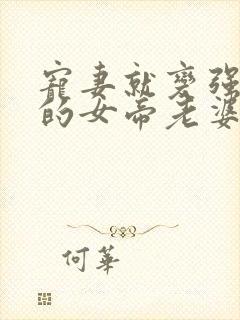 寵妻就變強
的女帝老婆
何華